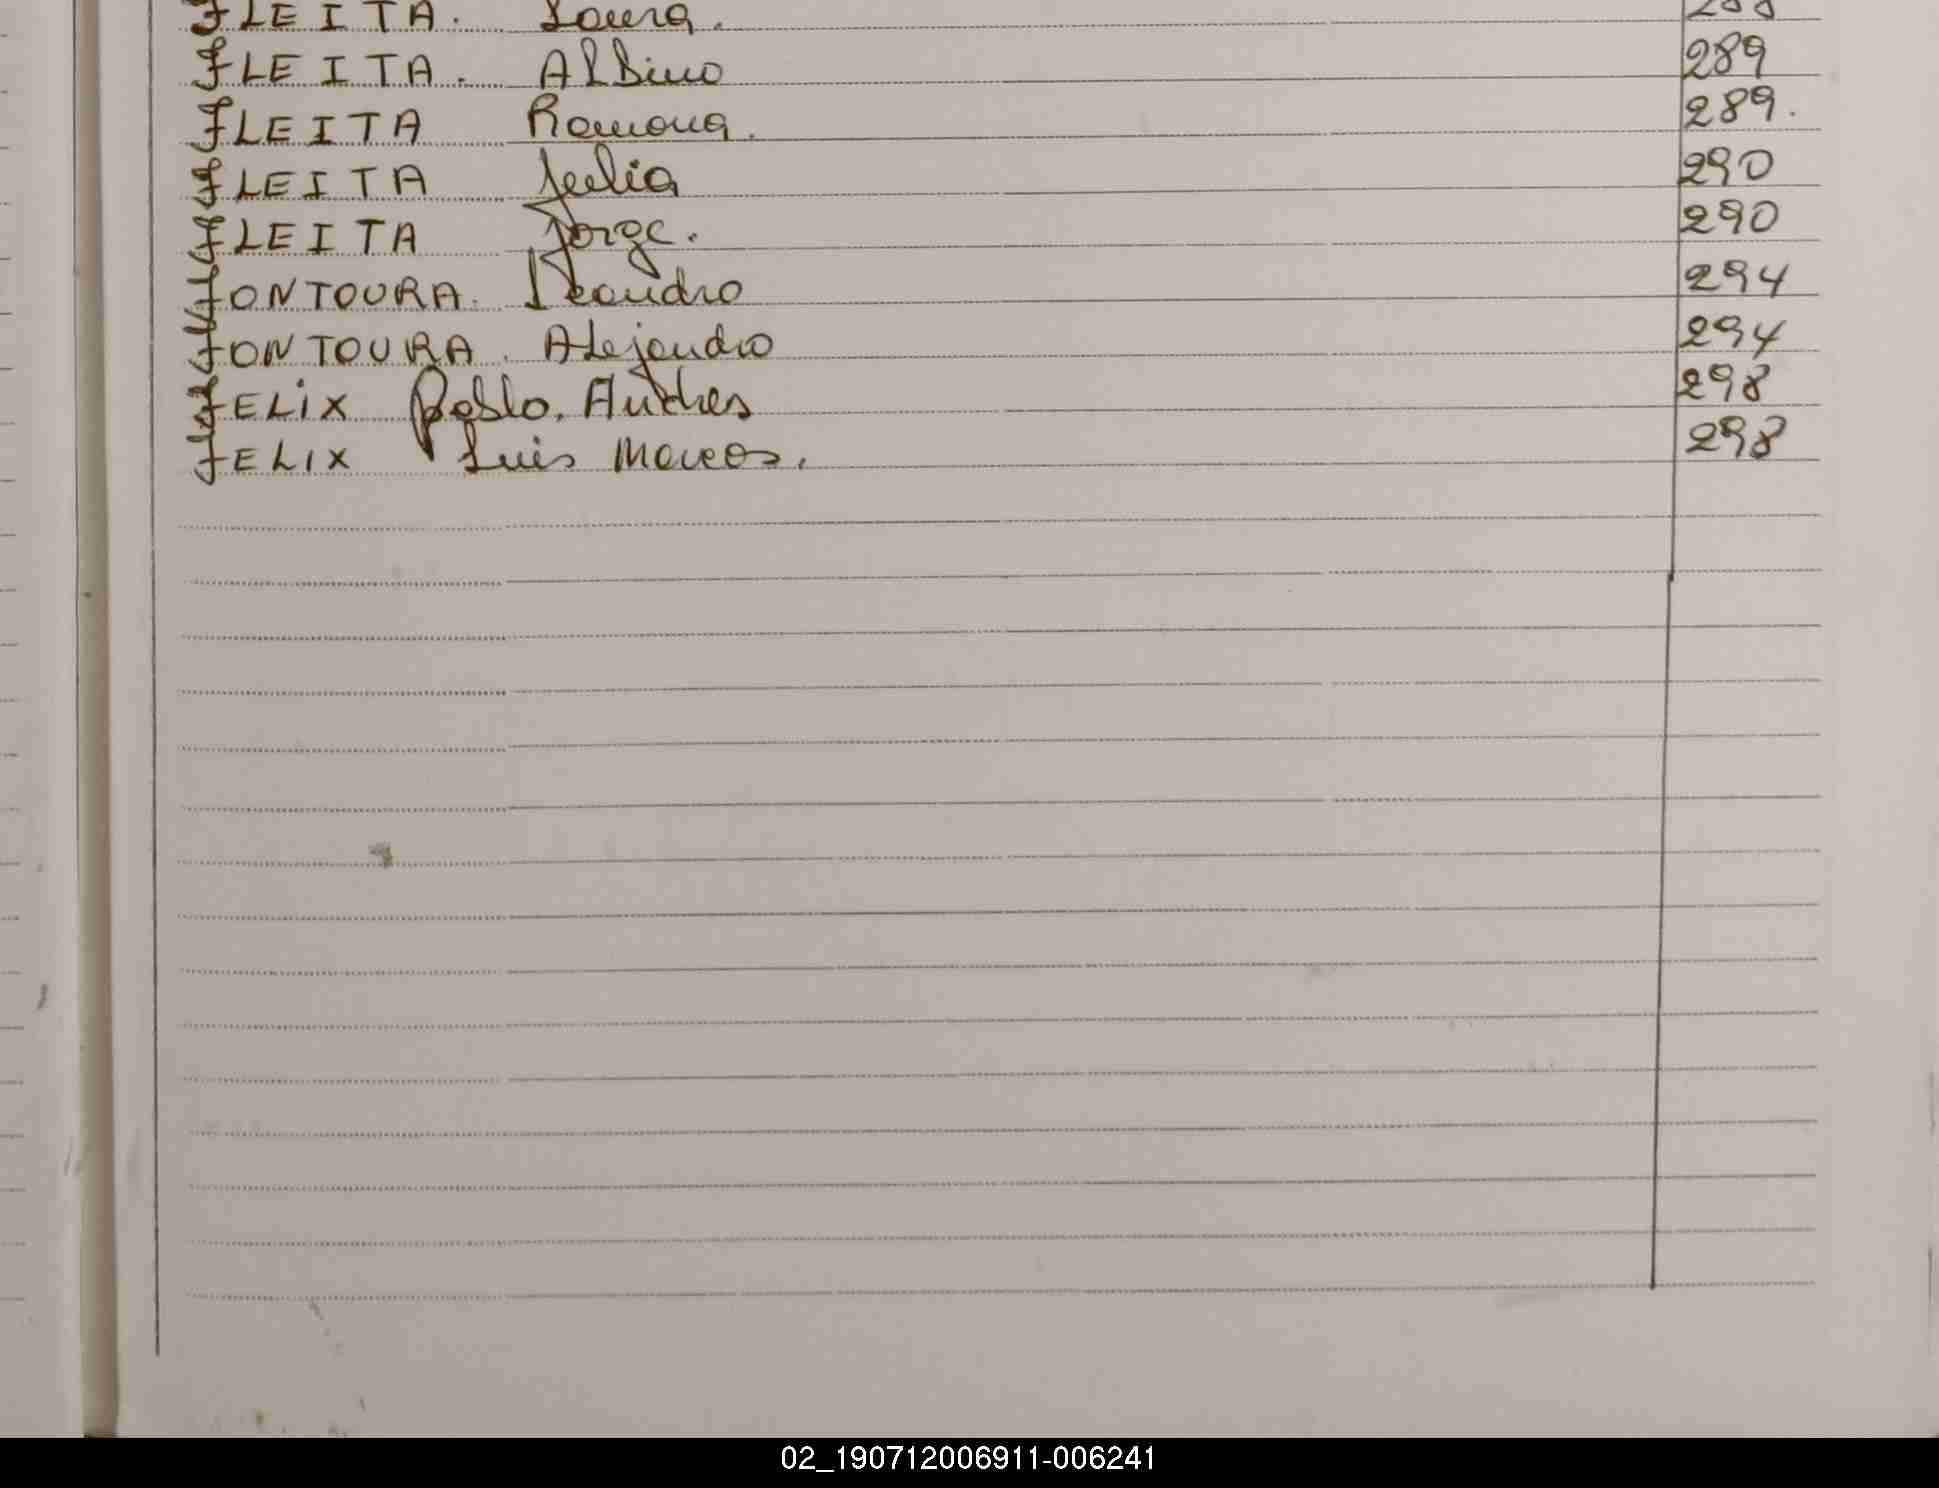 FLEITA. Laura. 288
FLEITA. Albino 289
FLEITA Ramona. 289.
FLEITA Julia 290
FLEITA Jorge. 290
FONTOURA. Leandro 294
FONTOURA. Alejandro 294
FELIX Pablo. Andres 298
FELIX Luis Marcos. 298
02_190712006911-006241